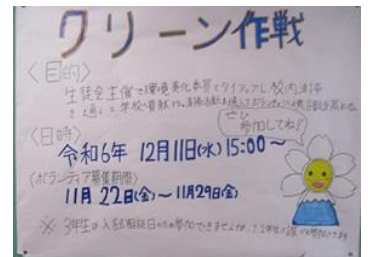 クリーン作戦
〈目的〉
生徒会主催で環境美化委員とタイアップし、校内清掃
を通して学校に貢献する。清掃活動を通してボランティアの意識を高める。
〈日時〉
令和6年 12月11日(水) 15:00~
ぜひ
参加してね!
(ボランティア募集期間)
11月 22日(金)~11月29日(金)
※ 3年生は入試相談日のため参加できませんが、1.2年生の